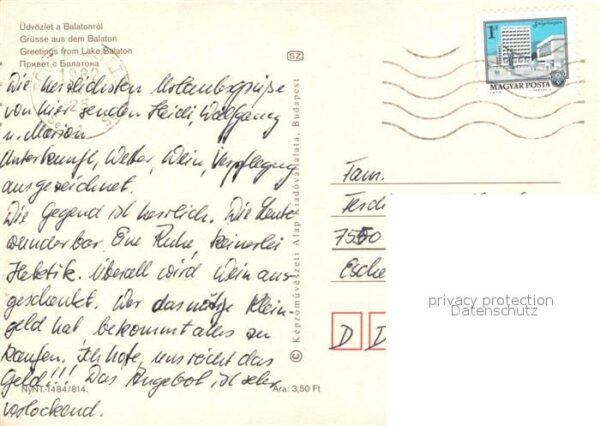 Üdvözlet a Balatonról
Grüsse aus dem Balaton
Greetings from Lake Balaton
Привет с Балатона
1982
25
SZ
1Ft
MAGYAR POSTA
Die herzlichsten Urlaubsgrüße
von hier senden Heidi, Wolfgang
u. Marion
Unterkunft, Wetter, Wein, Verpflegung
ausgezeichnet.
Die Gegend ist herrlich. Die Leute
wunderbar. Eine Ruhe, keinerlei
Hektik. Überall wird Wein aus-
geschenkt. Wer das nötige Klein-
geld hat bekommt alles zu
kaufen. Ich hoffe, uns reicht das
Geld!!! Das Angebot ist sehr
verlockend.
NyNT.-1484/814.
Ára: 3,50 Ft
© Képzőművészeti Alap Kiadóvállalata, Budapest
Fam.
Ferdi
7550
Esche
D D
privacy protection
Datenschutz